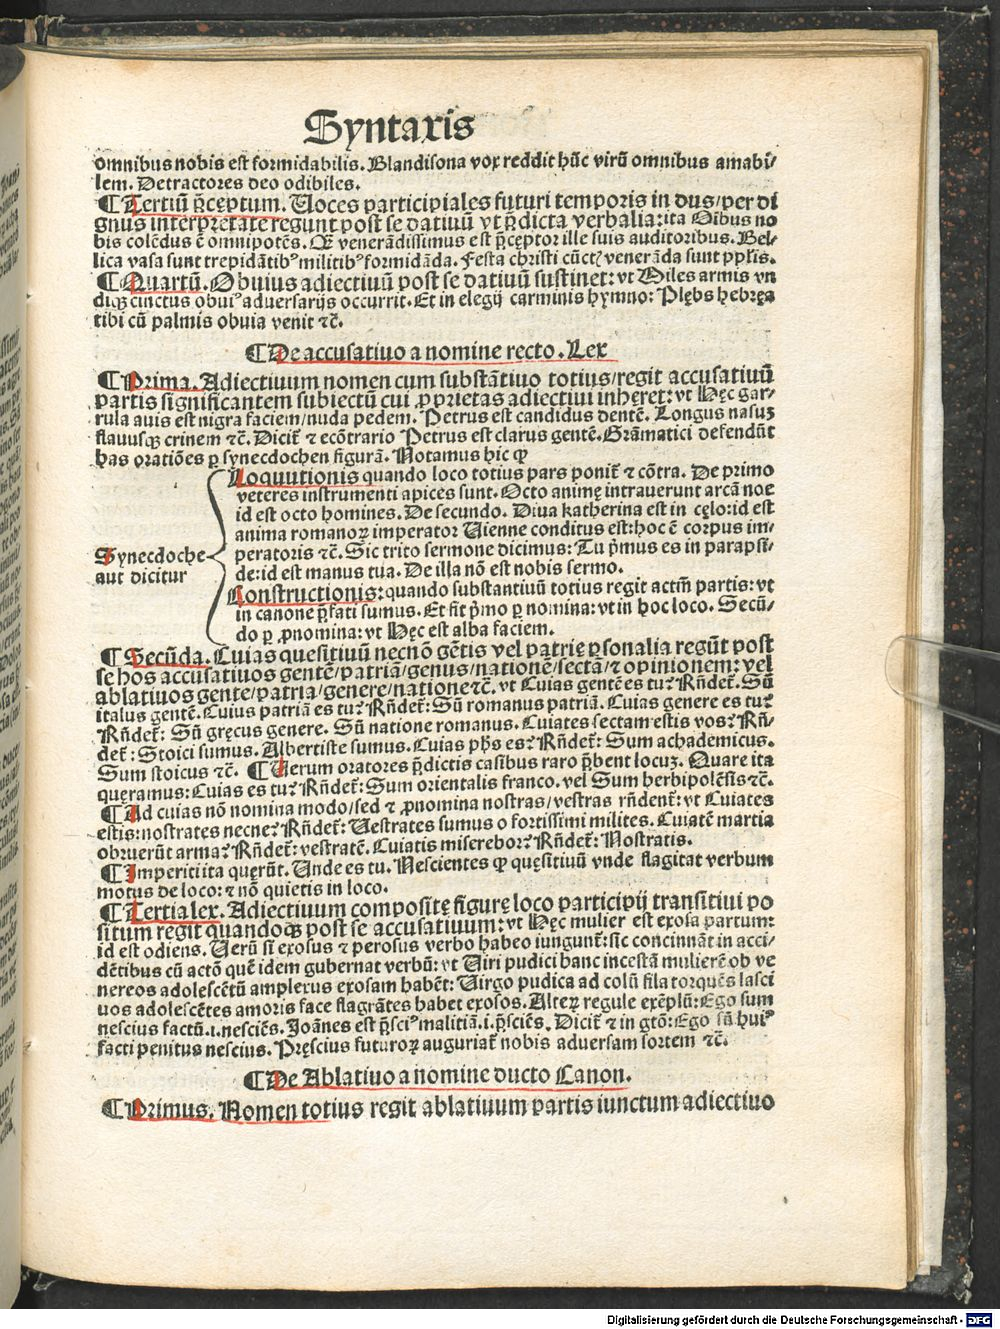 Syntaxis
omnibus nobis est formidabilis. Blandisona vox reddit hūc virū omnibus amabi/
lem. Detractores deo odibiles.
¶ Tertiū p̄ceptum. Voces participiales futuri temporis in dus/per di
gnus interpretate regunt post se datiuū vt p̄dicta verbalia: ita Oībus no
bis colēdus ē omnipotēs. Et venerādissimus est p̄ceptor ille suis auditoribus. Bel-
lica vasa sunt trepidātibꝰ militibꝰ formidāda. Festa christi cūctꝭ venerāda sunt pp̄lis.
¶ Quartū. Obuius adiectiuū post se datiuū sustinet: vt Miles armis vn
diqꝫ cinctus obuiꝰ aduersarijs occurrit. Et in elegij carminis hymno: Plebs hebręa
tibi cū palmis obuia venit ⁊c̄.
¶ De accusatiuo a nomine recto. Lex
¶ Prima. Adiectiuum nomen cum substātiuo totius/regit accusatiuū
partis significantem subiectū cui ꝓprietas adiectiui inheret: vt Hęc gar-
rula auis est nigra faciem/nuda pedem. Petrus est candidus dentē. Longus nasuꝫ
flauusqꝫ crinem ⁊c̄. Dicit̄ ⁊ ecōtrario Petrus est clarus gentē. Grāmatici defendūt
has oratiōes ꝑ synecdochen figurā. Notamus hic ꝙ
Synecdoche
aut dicitur
Loquutionis quando loco totius pars ponit̄ ⁊ cōtra. De primo
veteres instrumenti apices sunt. Octo animę intrauerunt arcā noe
id est octo homines. De secundo. Diua katherina est in cęlo: id est
anima romanoꝝ imperator Vienne conditus est: hoc ē corpus im-
peratoris ⁊c̄. Sic trito sermone dicimus: Tu p̄mus es in parapsi-
de: id est manus tua. De illa nō est nobis sermo.
Constructionis: quando substantiuū totius regit actm̄ partis: vt
in canone p̄fati sumus. Et fit p̄mo ꝑ nomina: vt in hoc loco. Secū-
do ꝑ ꝓnomina: vt Hęc est alba faciem.
¶ Secūda. Cuias quesitiuū necnō gētis vel patrię ꝑsonalia regūt post
se hos accusatiuos gentē/patriā/genus/nationē/sectā/⁊ opinionem: vel
ablatiuos gente/patria/genere/natione ⁊c̄. vt Cuias gentē es tu? Rn̄det̄. Sū
italus gentē. Cuius patriā es tu? Rn̄det̄: Sū romanus patriā. Cuias genere es tu?
Rn̄det̄: Sū gręcus genere. Sū natione romanus. Cuiates sectam estis vos? Rn̄-
det̄: Stoici sumus. Albertiste sumus. Cuias ph̄s es? Rn̄det̄: Sum achademicus.
Sum stoicus ⁊c̄. ¶ Verum oratores p̄dictis casibus raro p̄bent locuꝫ. Quare ita
queramus: Cuias es tu? Rn̄det̄: Sum orientalis franco. vel Sum herbipolēsis ⁊c̄.
¶ Ad cuias nō nomina modo/sed ⁊ ꝓnomina nostras/vestras rn̄dent̄: vt Cuiates
estis: nostrates necne? Rn̄det̄: Vestrates sumus o fortissimi milites. Cuiatē martia
obruerūt arma? Rn̄det̄: vestratē. Cuiatis miserebor? Rn̄det̄: Nostratis.
¶ Imperiti ita quęrūt. Unde es tu. Nescientes ꝙ quęsitiuū vnde flagitat verbum
motus de loco: ⁊ nō quietis in loco.
¶ Tertia lex. Adiectiuum compositę figurę loco participij transitiui po
situm regit quandoqꝫ post se accusatiuum: vt Hęc mulier est exosa partum:
id est odiens. Verū si exosus ⁊ perosus verbo habeo iungunt̄: sic concinnāt in acci-
dētibus cū actō quē idem gubernat verbū: vt Viri pudici hanc incestā mulierē ob ve
nereos adolescētū amplexus exosam habēt: Virgo pudica ad colū fila torquēs lasci
uos adolescētes amoris face flagrātes habet exosos. Alteꝝ regule exēplū: Ego sum
nescius factū .i. nesciēs. Joānes est p̄sciꝰ malitiā .i. p̄sciēs. Dicit̄ ⁊ in gtō: Ego sū huiꝰ
facti penitus nescius. Pręscius futuroꝝ auguriat̄ nobis aduersam sortem ⁊c̄.
¶ De Ablatiuo a nomine ducto Canon.
¶ Primus. Nomen totius regit ablatiuum partis iunctum adiectiuo
Digitalisierung gefördert durch die Deutsche Forschungsgemeinschaft - DFG